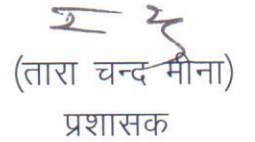 (तारा चन्द मीना)
प्रशासक